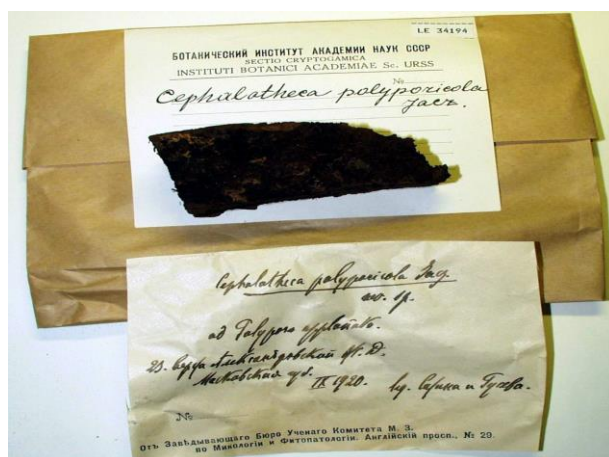 LE 34194
БОТАНИЧЕСКИЙ ИНСТИТУТ АКАДЕМИИ НАУК СССР
SECTIO CRYPTOGAMICA
INSTITUTI BOTANICI ACADEMIAE Sc. URSS
№
Cephalotheca polyporicola
Jacz.
Cephalotheca polyporicola Jacz.
ad Polyporo applanato.
Александровской ж. д.
Московская губ. IX 1920.
№
Отъ Завѣдывающаго Бюро Ученаго Комитета М. З.
по Микологіи и Фитопатологіи. Англійскій просп., № 29.